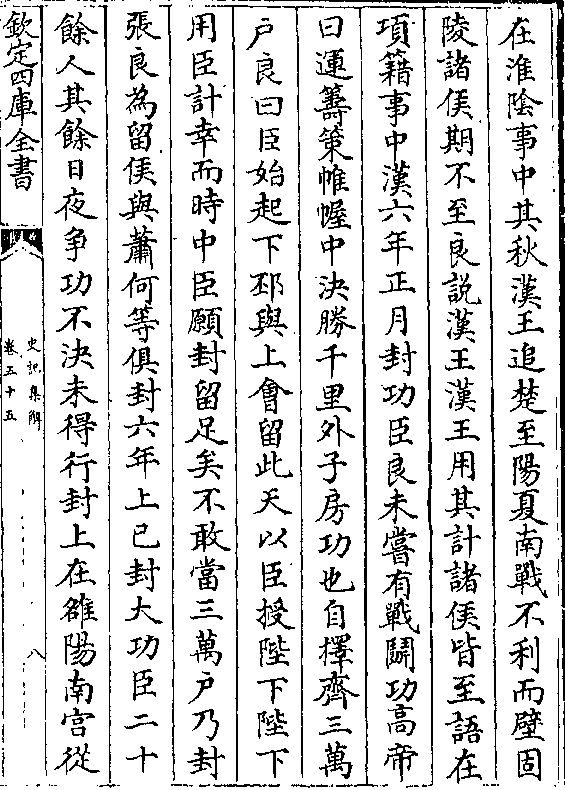 在淮陰事中其秋漢王追楚至陽夏南戰不利而壁固
陵諸侯期不至良説漢王漢王用其計諸侯皆至語在
項籍事中漢六年正月封功臣良未嘗有戰鬭功高帝
曰運籌策帷幄中決勝千里外子房功也自擇齊三萬
户良曰臣始起下邳與上㑹留此天以臣授陛下陛下
用臣計幸而時中臣願封留足矣不敢當三萬户乃封
張良為留侯與蕭何等俱封六年上已封大功臣二十
餘人其餘日夜爭功不決未得行封上在雒陽南宫從
欽定四庫全書
史記集解
卷五十五
八